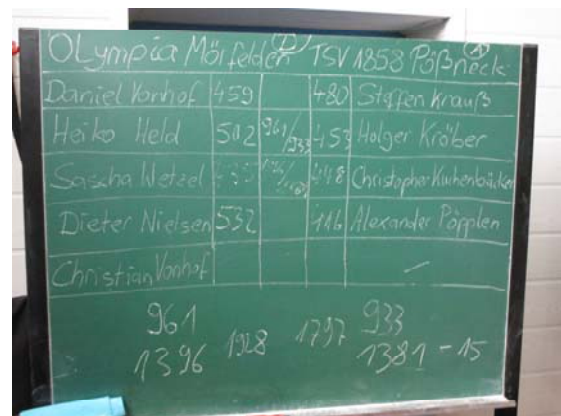 Olympia Mörfelden TSV 1858 Pößneck (A)
Daniel Vonhof 459 480 Steffen Krauß
Heiko Held 502 961/933 453 Holger Kröber
Sascha Wetzel 435 448 Christopher
Dieter Nielsen 532 416 Alexander Pöpplen
Christian Vonhof –
961 933
1396 1928 1797 1381 - 15